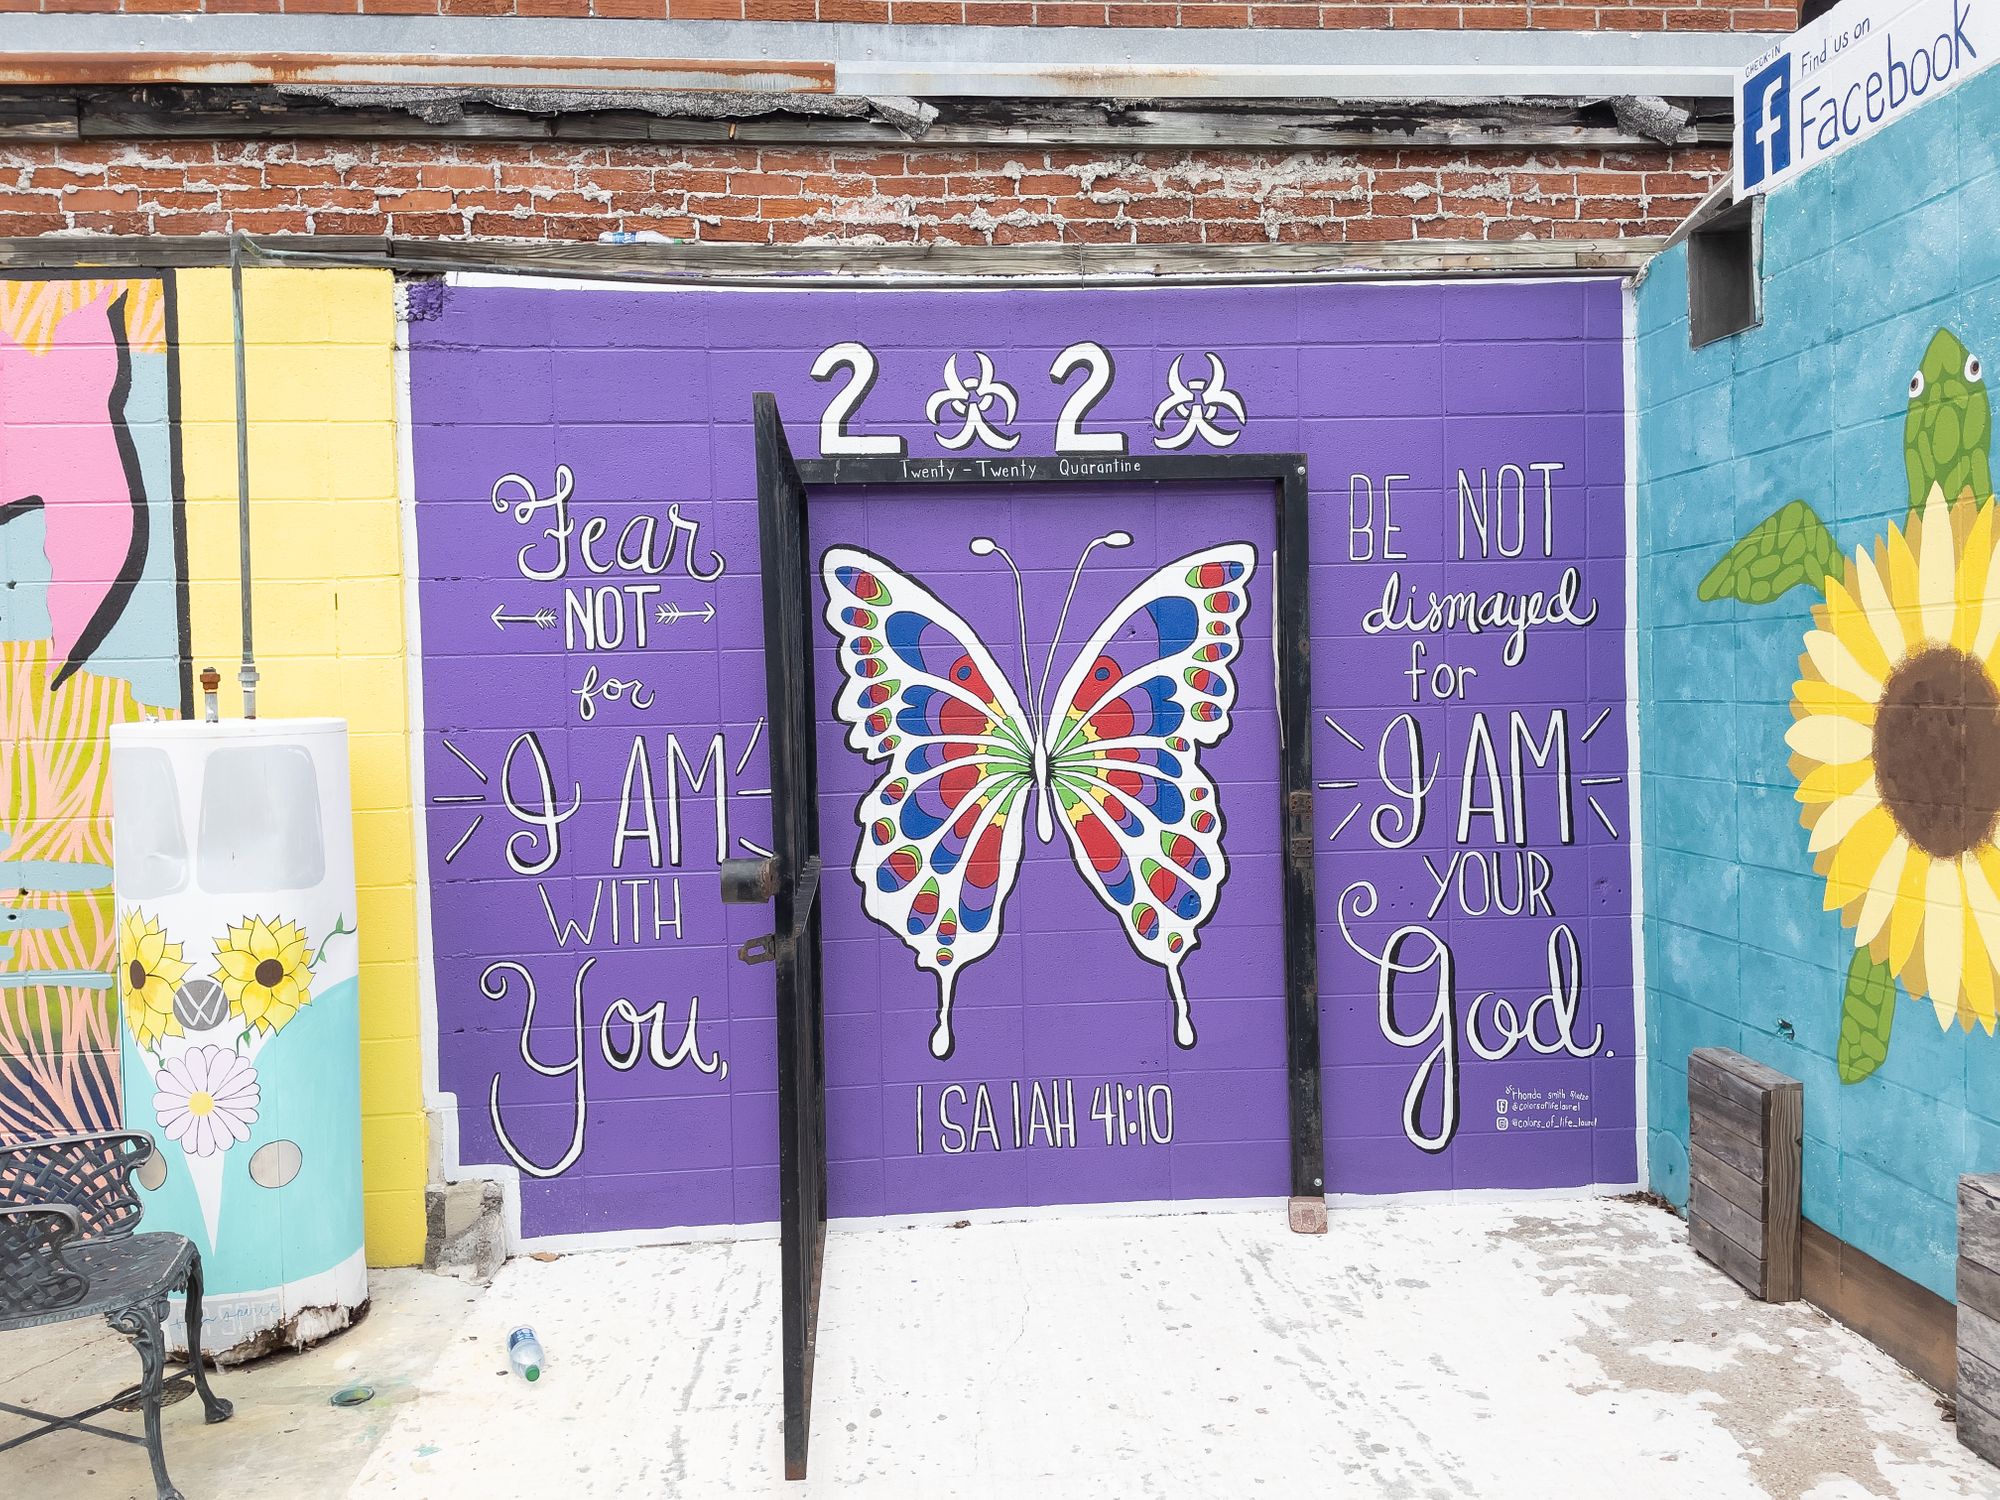 CHECK-IN
f Find us on
Facebook
2020
Twenty - Twenty Quarantine
Fear
NOT
for
I AM
WITH
You,
BE NOT
dismayed
for
I AM
YOUR
God.
ISAIAH 41:10
rhonda smith
@colorsoflifelaurel
@colors_of_life_laurel
VW